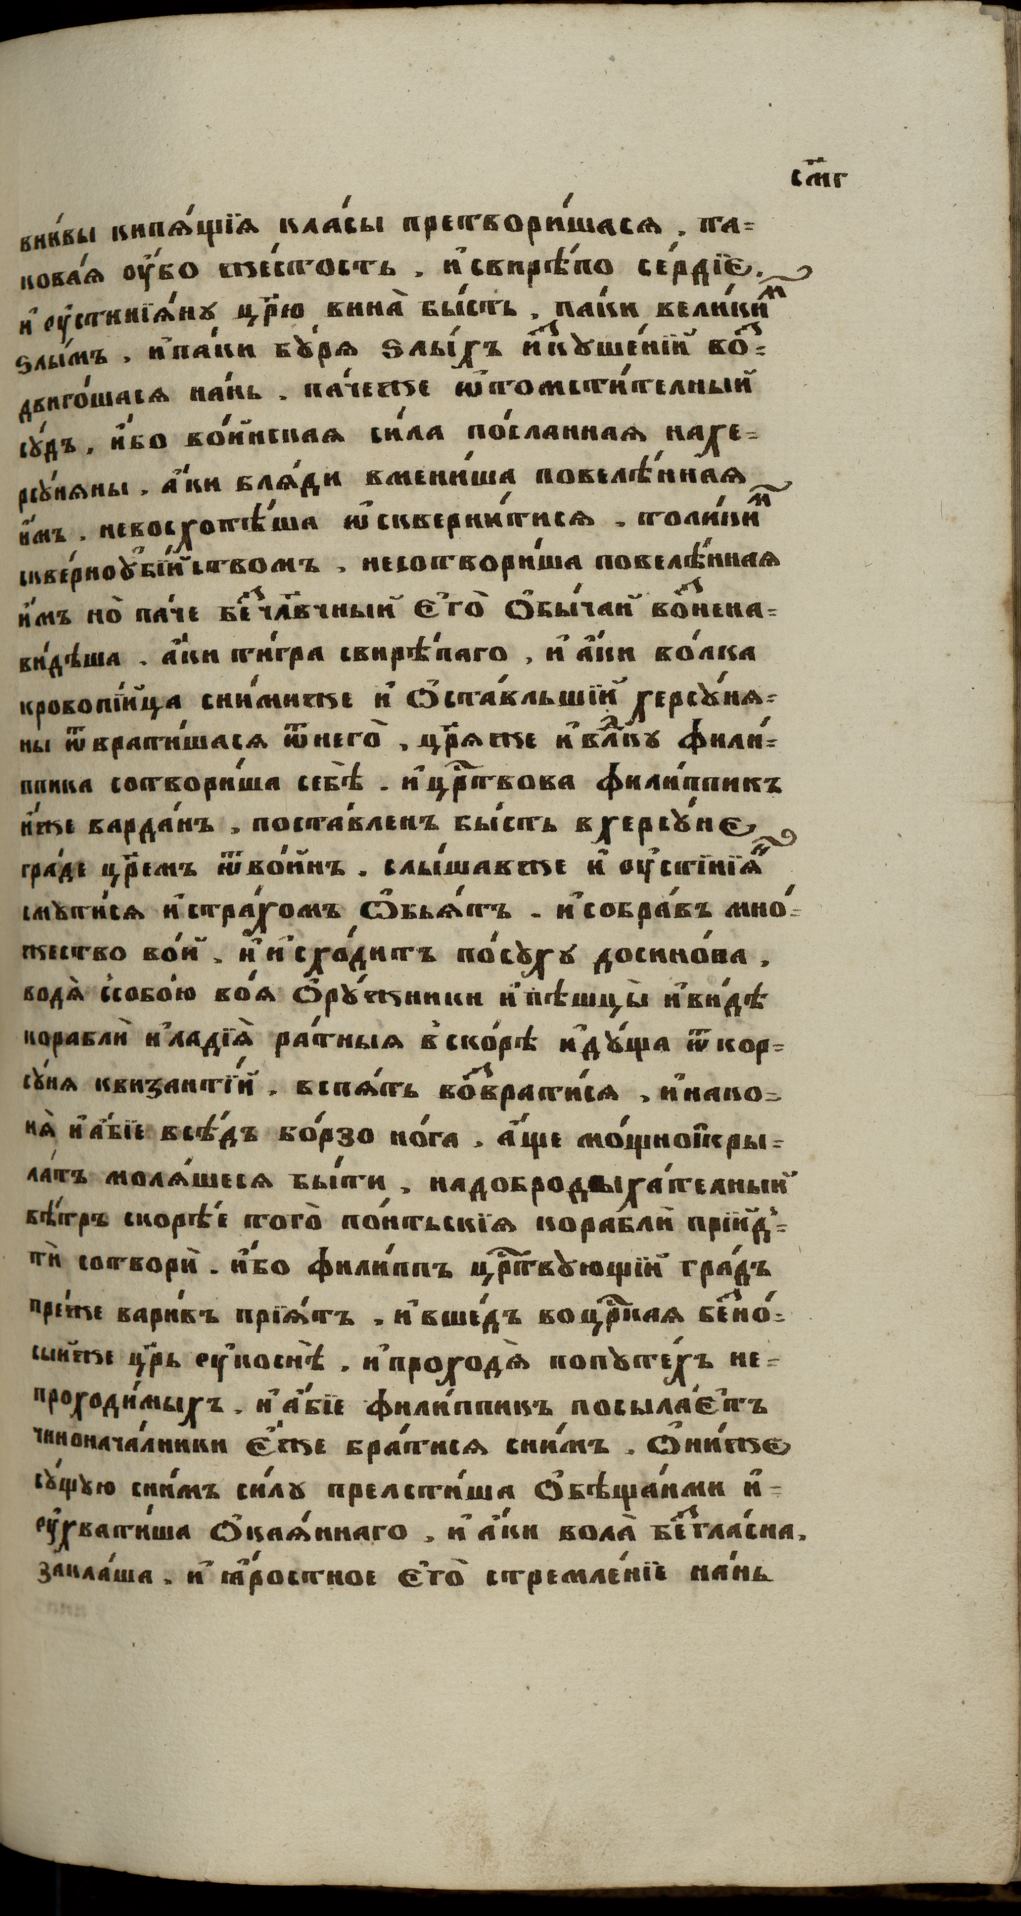 с҃мг
вни́вы кипѧ́щїѧ кла́сы претвори́шасѧ . та=
кова́ѧ ᲂу҆́бо же́стость . и҆свирѣ́по се́рдїе.
и҆ ᲂу҆стинїѧ́ну цр҃ю вина̀ бы́сть . па́ки вели́киⷨ
ѕлы́мъ . и҆па́ки бу́рѧ ѕлы́хъ и҆скуше́нїй воⷥ=
двиго́шасѧ на́нь . па́чеже ѿтомсти́телный
су́дъ . и҆́бо во́инскаѧ си́ла по́сланнаѧ нахе=
рсу́нѧны . а҆́ки блѧ́ди вмени́ша повелѣ́ннаѧ
и҆́мъ . невосхотѣ́ша ѡ҆скверни́тисѧ . толи́киⷨ
скве́рноубі́йством̾ . несотвори́ша повелѣ́ннаѧ
и҆́мъ но̀ па́че беⷥчл҃вчный є҆го̀ ѻ҆бы́чай воⷥнена=
ви́дѣша . а҆́ки ти́гра свирѣ́паго , и҆ а҆́ки во́лка
кровопі́йца сни́миже и҆ ѻ҆ста́вльшїй херсу́нѧ=
ны ѿврати́шасѧ ѿнего̀ , цр҃ѧже и҆ влⷣку фили́=
ппика сотвори́ша себѣ̀ . и҆ црⷭ҇твова фили́ппикъ
и҆́же варда́нъ , поста́вленъ бы́сть в херсу́не
гра́де цр҃емъ ѿво́инъ . слы́шавже и҆ ᲂу҆стїнїѧⷩ
смѣти́сѧ и҆стра́хомъ ѡ҆бьѧ́тъ . и҆собра́въ мно́=
жество во́й . и҆ и҆схо́дитъ по́суху досино́па .
водѧ̀ ссобо́ю во́ѧ ѻ҆ру́жники и҆ пѣшцы̀ и҆ ви́дѣ
кораблѝ и҆ ладїѧ̀ ра́тныѧ в̾ско́рѣ и҆ду́ща ѿ кор=
су́нѧ квизанті́й . вспѧ́ть воⷥврати́сѧ , и҆напо=
нѧ̀ и҆а҆́бїе всѣ́дъ бо́рзо но́га . а҆́ще мо́щнопⷭ҇кры=
ла́тъ молѧ́шесѧ бы́ти , надоброды́ха́телный
вѣ́тръ скорѣ́е того̀ по́нтьскїѧ кораблѝ прїид=
тѝ сотворѝ . и҆́бо фили́ппъ црⷭ҇твующїй гра́дъ
пре́же вари́въ прїѧ́тъ . и҆ вше́дъ воцрⷭ҇каѧ беⷥно́=
сы́йже цр҃ь ᲂу҆коснѣ̀ . и҆ проходѧ̀ попуте́хъ не=
проходи́мыхъ . и҆ а҆́бїе фили́ппикъ посыла́єтъ
чинонача́лники є҆́же бра́тисѧ сни́мъ . ѻ҆ни́же
су́щую сни́мъ си́лу прелсти́ша ѻ҆бѣща́нми и҆=
ᲂу҆хвати́ша ѻ҆каѧ́ннаго , и҆ а҆́ки вола̀ беⷥгла́сна,
закла́ша . и҆ ꙗ҆́ростное є҆го̀ стремле́нїе на́нь